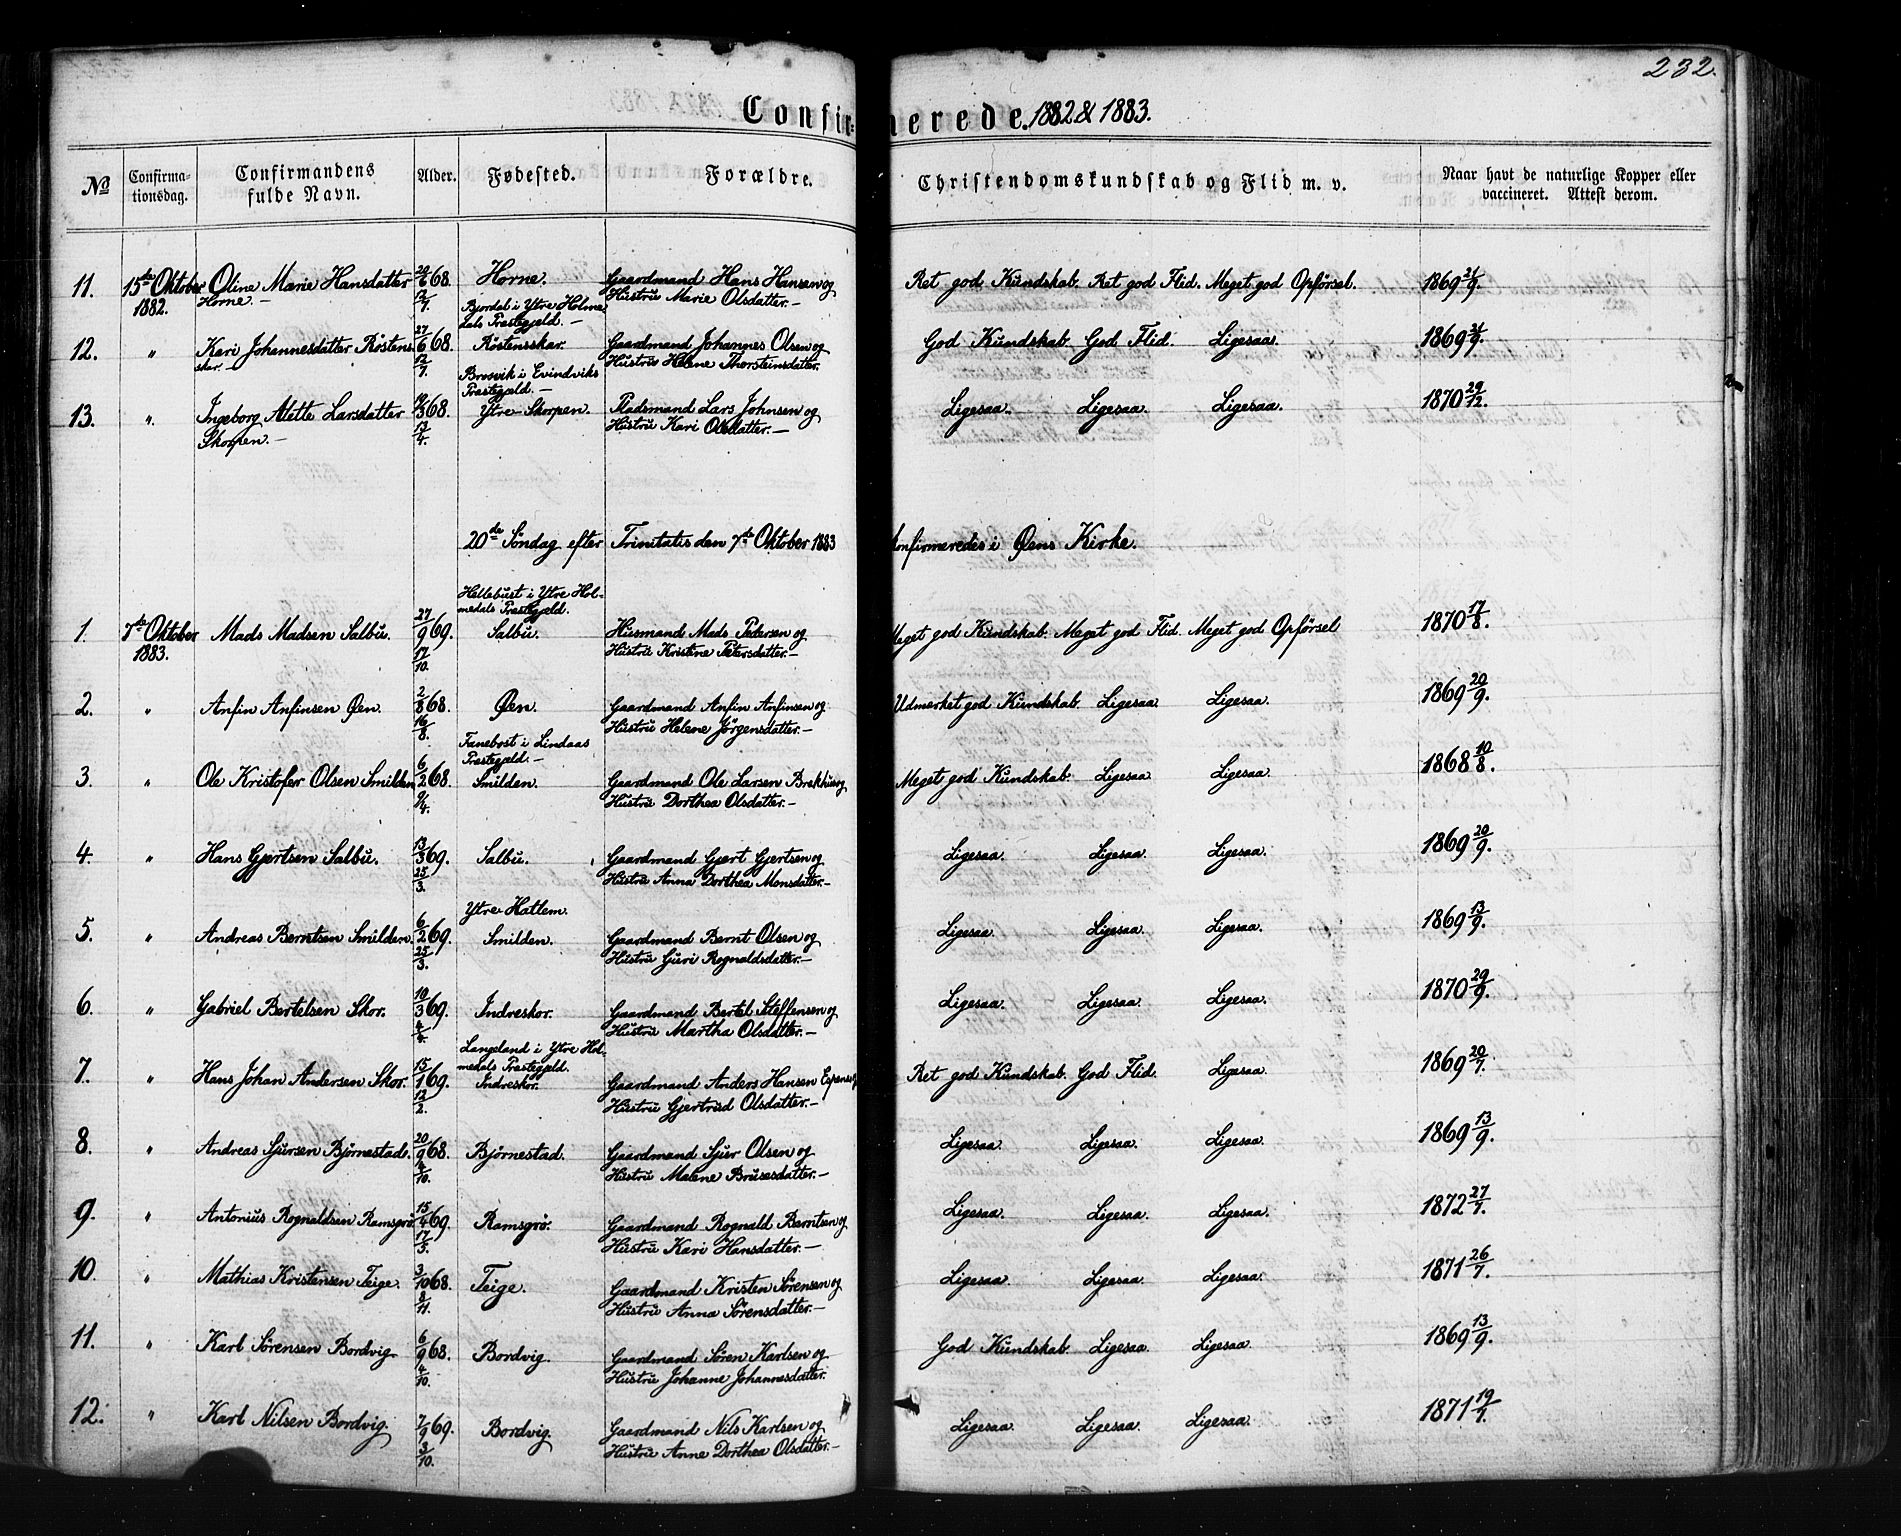 232.
Confir= merede. 1882 & 1883.
No Confirma-tionsdag. Confirmandens fulde Navn. Alder. Fødested. Forældre. Christendomskundskab og Flid m. v. Naar havt de naturlige Kopper eller vaccineret. Attest derom.
11. 15de Oktober Oline Marie Hansdatter 68. Horne. Gaardmand Hans Hansen og Ret god Kundskab. Ret god Flid. Meget god Opførsel. 1869 21/9.
1882. Horne. — 12/7. Bjordal i Ytre Holme- Hustru Marie Olsdatter. —
dals Præstegjeld. —
12. " Kari Johannesdatter Röstens- 27/6 68. Röstensskar. Gaardmand Johannes Olsen og God Kundskab. God Flid. Ligesaa. 1869 21/9.
skar. — 12/7. Brosvik i Evindviks Hustru Helene Thorsteinsdatter.
Præstegjeld. —
13. " Ingeborg Alette Larsdatter 68. Ytre Skorpen. Pladsmand Lars Johnsen og Ligesaa. Ligesaa. Ligesaa. 1870 29/12.
Skorpen. — 13/4. Hustru Kari Olsdatter. —
20de Söndag efter Trinitatis den 7de Oktober 1883 konfirmeredes i Øens Kirke.
Hellebust i Ytre Hol-
medals Præstegjeld.
1. 7de Oktober Mads Madsen Salbu. 27/9 69. Salbu. Husmand Mads Pedersen og Meget god Kundskab. Meget god Flid. Meget god Opførsel 1870 17/8.
1883. 17/10. Hustru Kristine Petersdatter. —
2. " Anfin Anfinsen Øen. 2/8 68. Øen. Gaardmand Anfin Anfinsen og Udmerket god Kundskab. Ligesaa. Ligesaa. 1869 20/9.
16/8. Hustru Helene Jörgensdatter. —
Fanebost i Lindaas
Præstegjeld. —
3. " Ole Kristofer Olsen Smilden 6/2 68. Smilden. Gaardmand Ole Larsen Brekhus og Meget god Kundskab. Ligesaa. Ligesaa. 1868 10/8.
9/4. Hustru Dorthea Olsdatter. —
4. " Hans Gjertsen Salbu. 13/3 69. Salbu. Gaardmand Gjert Gjertsen og Ligesaa. Ligesaa. Ligesaa. 1869 20/9.
25/3. Hustru Anna Dorthea Monsdatter. —
Ytre Hatlem.
5. " Andreas Berntsen Smilden. 6/2 69. Smilden. Gaardmand Bernt Olsen og Ligesaa. Ligesaa. Ligesaa. 1869 13/9.
25/3. Hustru Guri Rognaldsdatter. —
6. " Gabriel Bertelsen Skor. 10/3 69. Indreskor. Gaardmand Bertel Steffensen og Ligesaa. Ligesaa. Ligesaa. 1870 29/9.
4/4. Hustru Martha Olsdatter. —
Langeland i Ytre Hol-
medals Præstegjeld.
7. " Hans Johan Andersen Skor. 15/1 69. Indreskor. Gaardmand Anders Hansen Ret god Kundskab. God Flid. Ligesaa. 1869 20/7.
12/2. Hustru Gjertrud Olsdatter. —
8. " Andreas Sjursen Björnestad. 20/9 68. Björnestad. Gaardmand Sjur Olsen og Ligesaa. Ligesaa. Ligesaa. 1869 13/9.
4/10. Hustru Malene Brusesdatter. —
9. " Antonius Rognaldsen Ramsgrö. 15/4 69. Ramsgrö. Gaardmand Rognald Berntsen og Ligesaa. Ligesaa. Ligesaa. 1872 27/7.
17/5. Hustru Kari Hansdatter. —
10. " Mathias Kristensen Teige. 3/10 68. Teige. Gaardmand Kristen Sörensen og Ligesaa. Ligesaa. Ligesaa. 1871 26/7.
8/11. Hustru Anna Sörensdatter. —
11. " Karl Sörensen Bordvig 6/9 68. Bordvig. Gaardmand Sören Karlsen og God Kundskab. Ligesaa. Ligesaa. 1869 13/9.
4/10. Hustru Johanne Johannesdatter.
12. " Karl Nilsen Bordvig 7/9 69. Bordvig. Gaardmand Nils Karlsen og Ligesaa. Ligesaa. Ligesaa. 1871 19/7.
3/10. Hustru Anne Dorthea Olsdatter. —